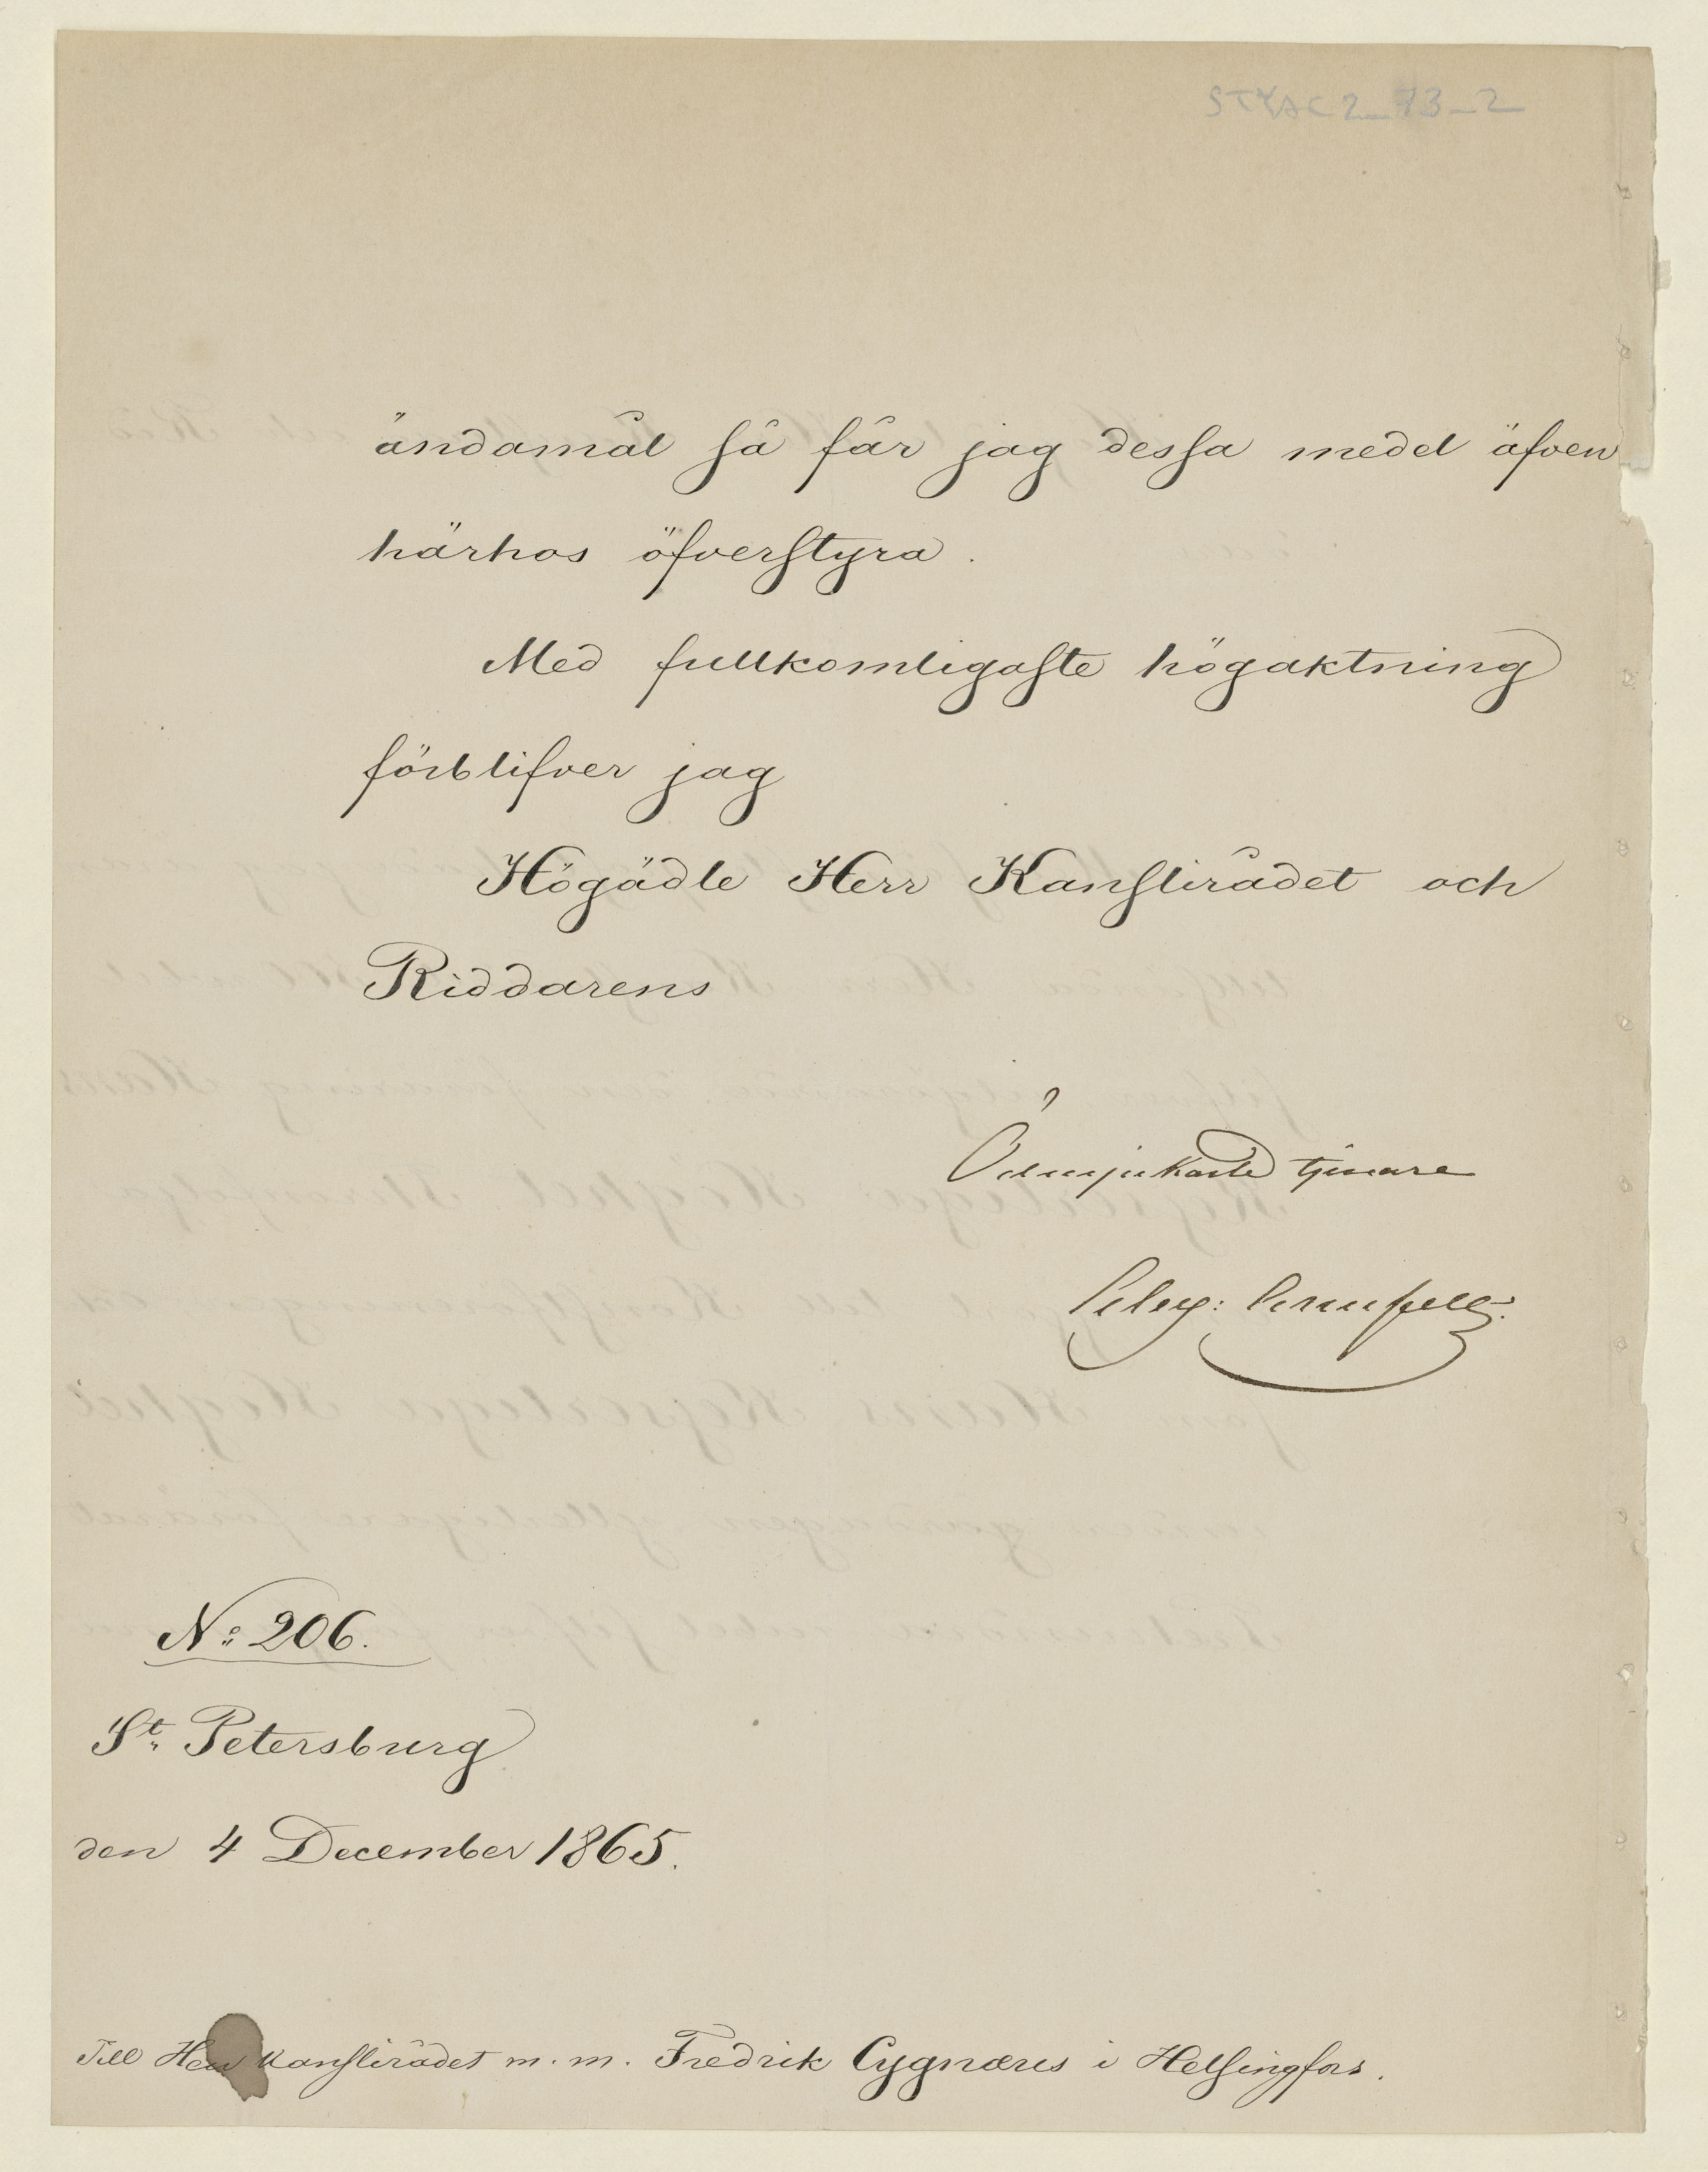 STYAC2_73_2
ändamål så får jag dessa medel äfven
härhos öfverstyra.
Med fullkomligaste högaktning
förblifver jag
Högädle Herr Kanslirådet och
Riddarens
Ödmjukaste tjenare
Alex: Armfelt.
No: 206.
St. Petersburg
den 4 December 1865.
Till Herr Kanslirådet m. m. Fredrik Cygnæus i Helsingfors.